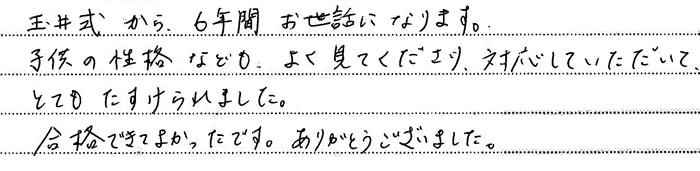 玉井式から、6年間お世話になります。
子供の性格なども、よく見てくださり、対応していただいて、
とてもたすけられました。
合格できてよかったです。ありがとうございました。